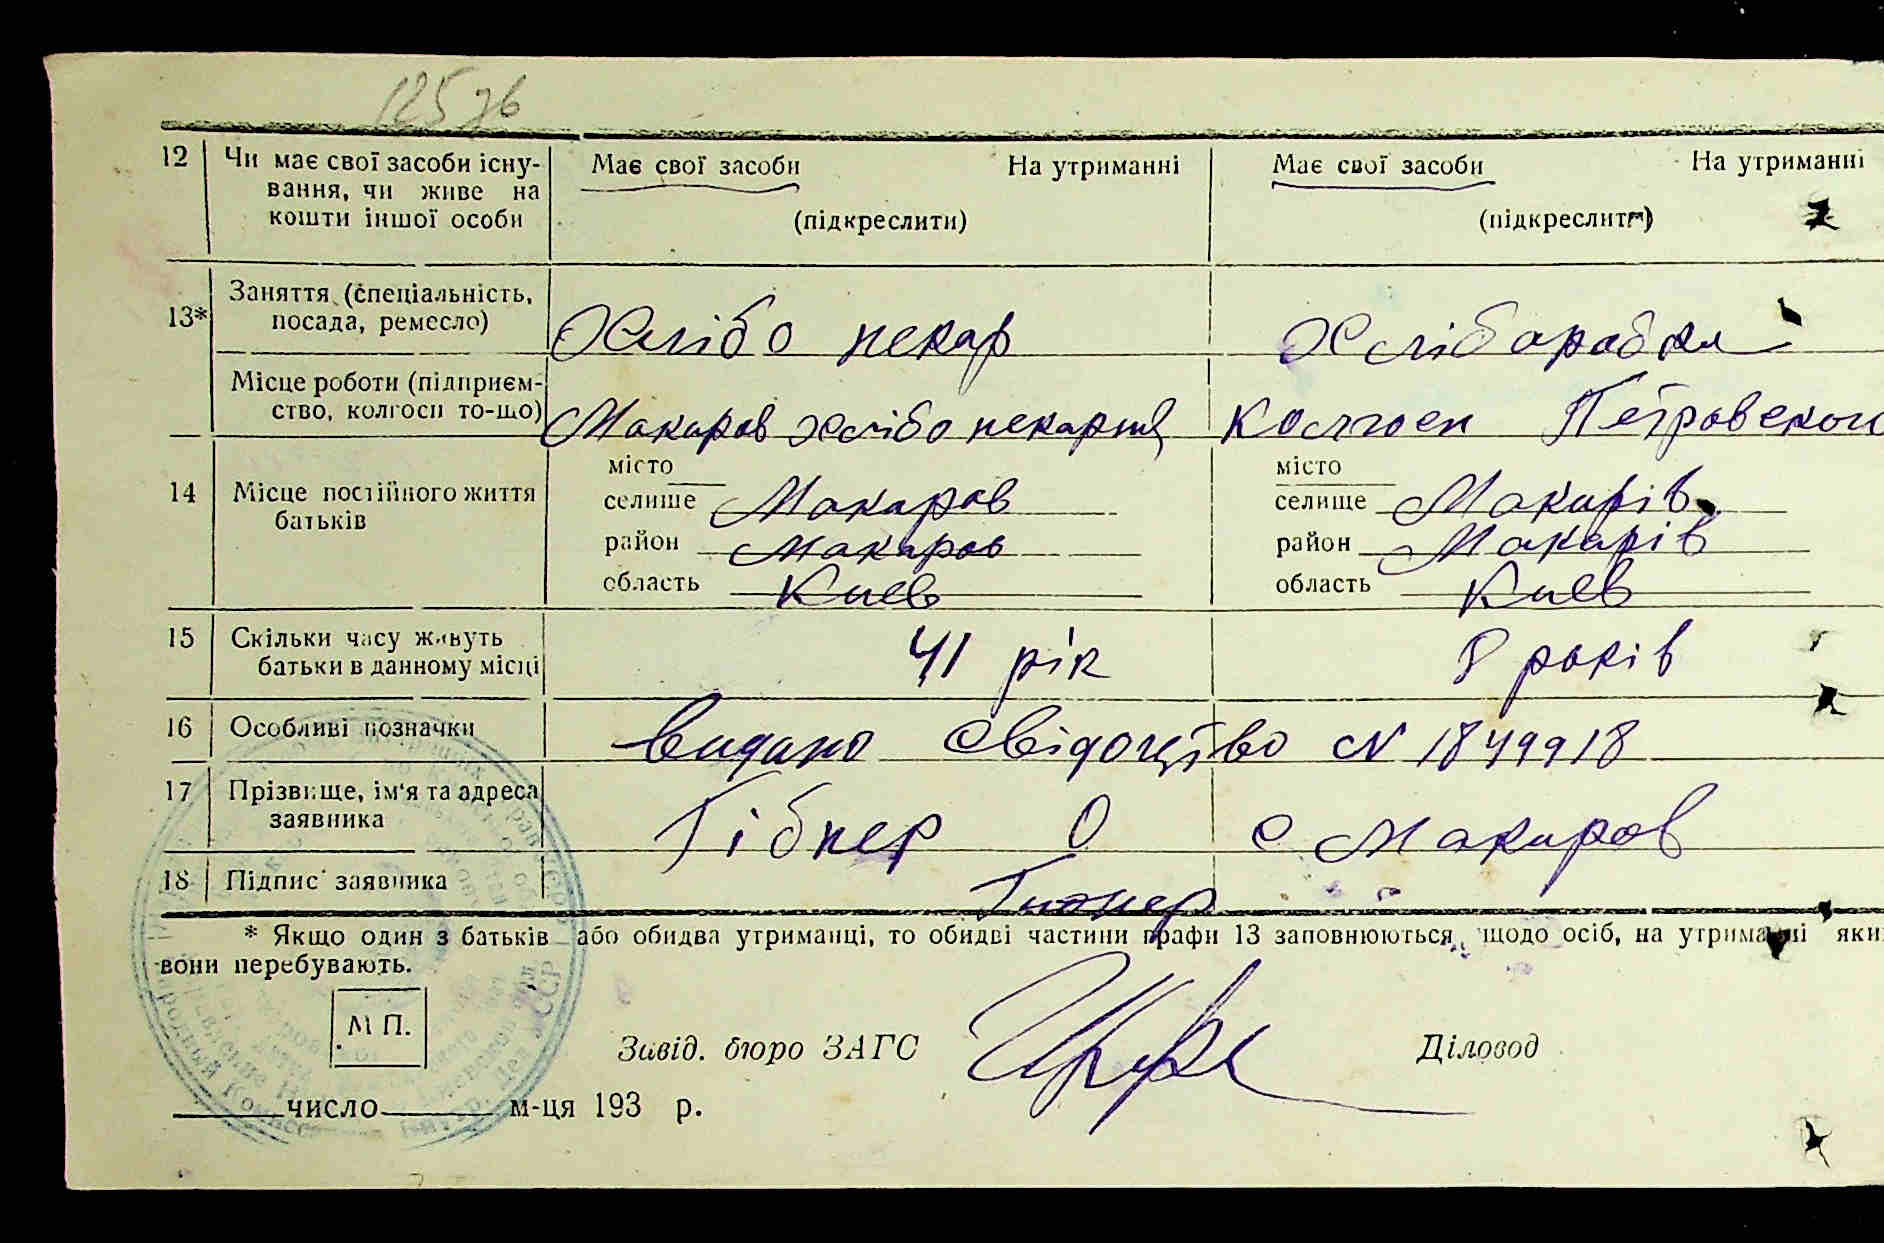 125 зв
12 Чи має свої засоби існу- Має свої засоби На утриманні Має свої засоби На утриманні
вання, чи живе на
кошти іншої особи (підкреслити) (підкреслити)
Заняття (спеціальність,
13* посада, ремесло) Хлібо пекар Хліборабка
Місце роботи (підприєм-
ство, колгосп то-що) Макаров хлібо пекарня Колгосп Петровского
місто місто
14 Місце постійного життя селище Макаров селище Макарів
батьків
район Макаров район Макарів
область Киев область Киев
15 Скільки часу живуть
батьки в данному місці 41 рік 8 років
16 Особливі позначки Видано Свідоцтво N 1849918
17 Прізвище, ім'я та адреса
заявника Гібнер О с Макаров
18 Підпис заявника
* Якщо один з батьків або обидва утриманці, то обидві частини графи 13 заповнюються щодо осіб, на утриманні яки
вони перебувають.
М П.
Завід. бюро ЗАГС Діловод
число м-ця 193 р.